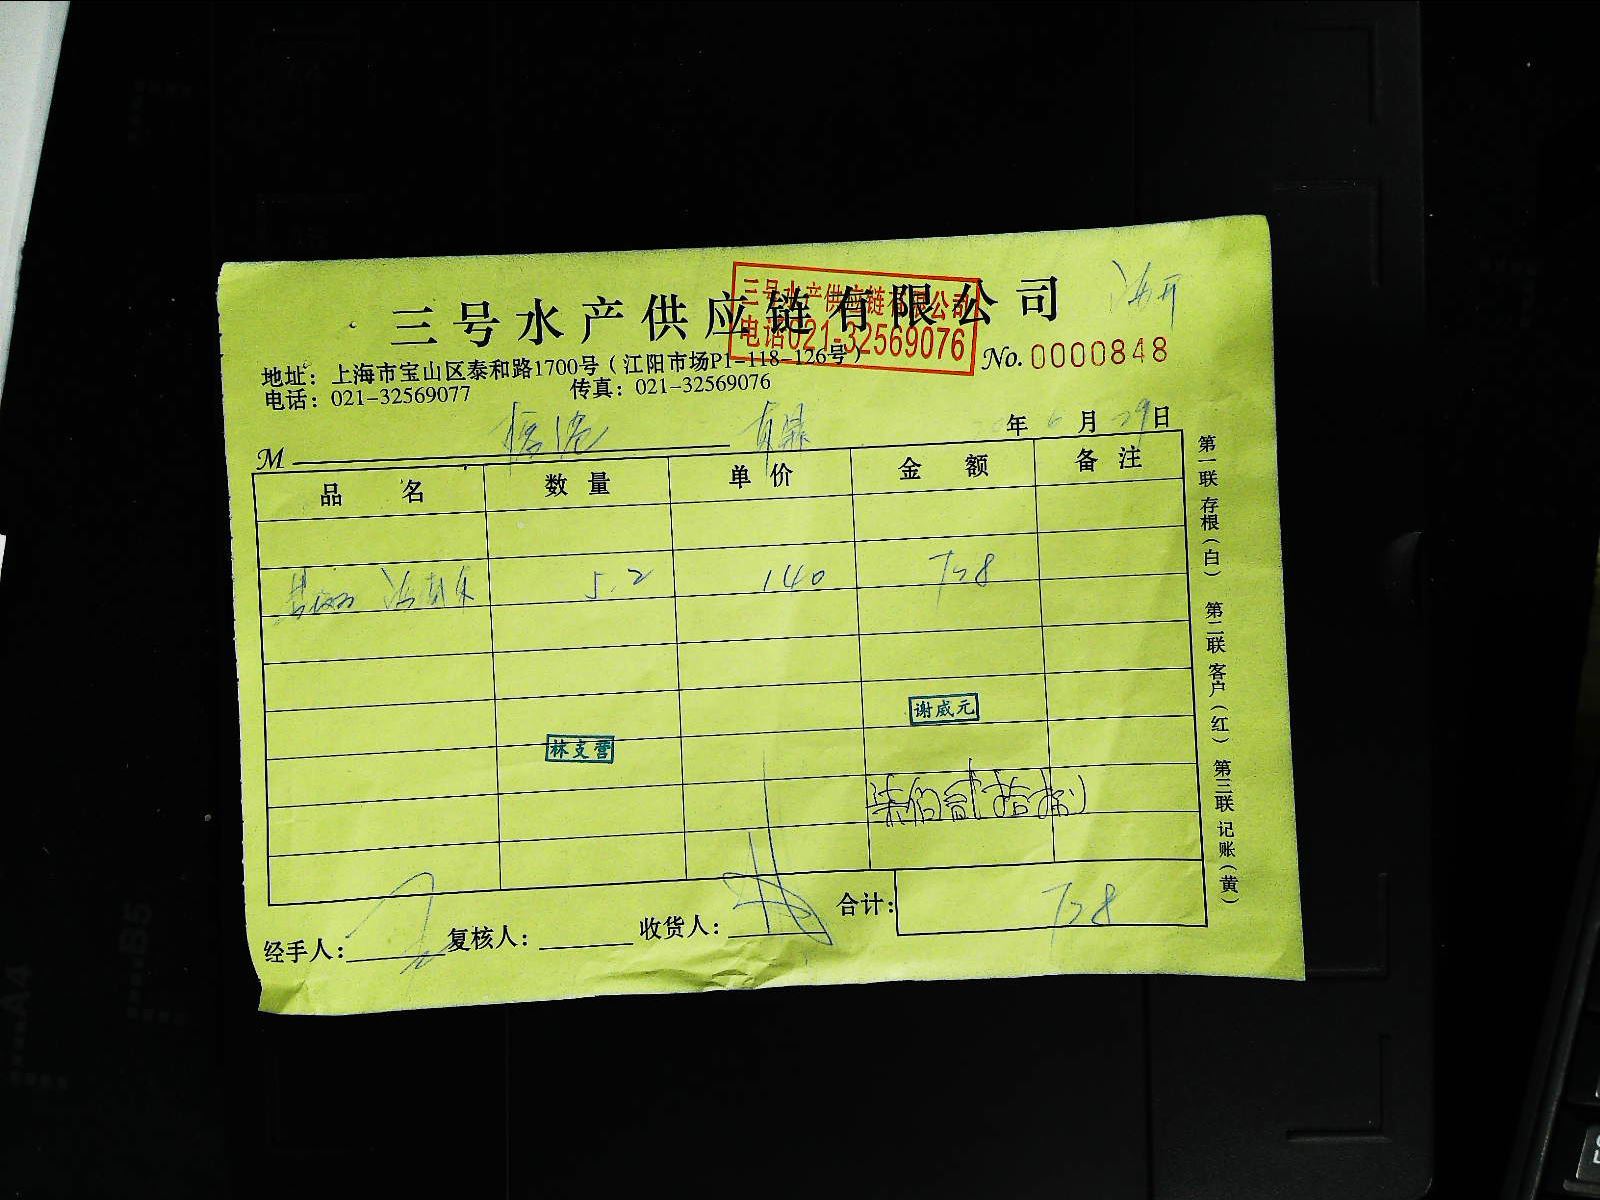 三号水产供应链有限公司
三号水产供应链有限公司
电话021-32569076
No. 0000848
地址：上海市宝山区泰和路1700号（江阳市场P1-118-126号）
电话：021-32569077 传真：021-32569076
M
年 6 月 29 日
品名 数量 单价 金额 备注
5.2 140 728
谢威元
林支营
柒佰贰拾捌
经手人： 复核人： 收货人： 合计： 728
第一联 存根（白） 第二联 客户（红） 第三联 记账（黄）
B5
A4